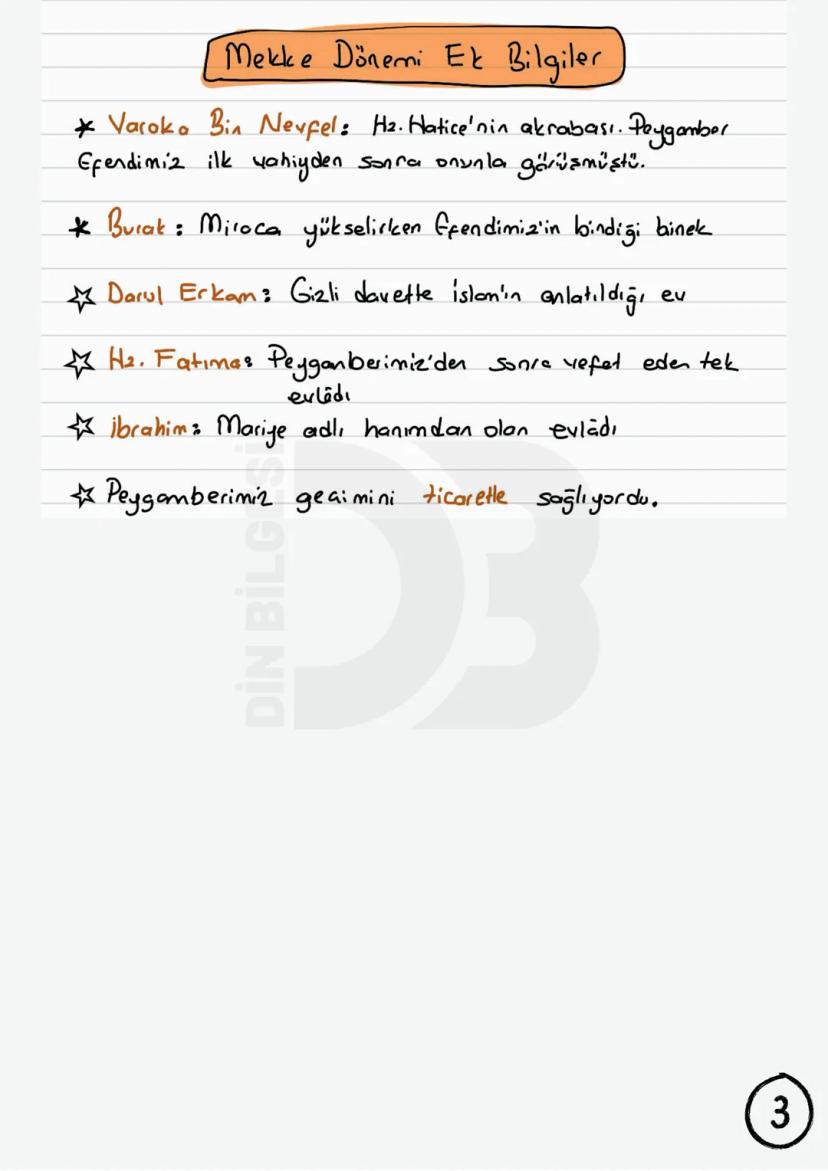 Mekke Dönemi Ek Bilgiler
* Varaka Bin Nevfel: Hz. Hatice'nin akrabası. Peygamber
Efendimiz ilk vahiyden sonra onunla görüşmüştü.
* Burak: Miraca yükselirken Efendimiz'in bindiği binek
☆ Darul Erkam: Gizli davette İslam'ın anlatıldığı ev
☆ Hz. Fatıma: Peygamberimiz'den sonra vefat eden tek
evlâdı
☆ İbrahim: Mariye adlı hanımdan olan evlâdı
☆ Peygamberimiz geçimini ticaretle sağlıyordu.
DİN BİLGESİ
DB
3